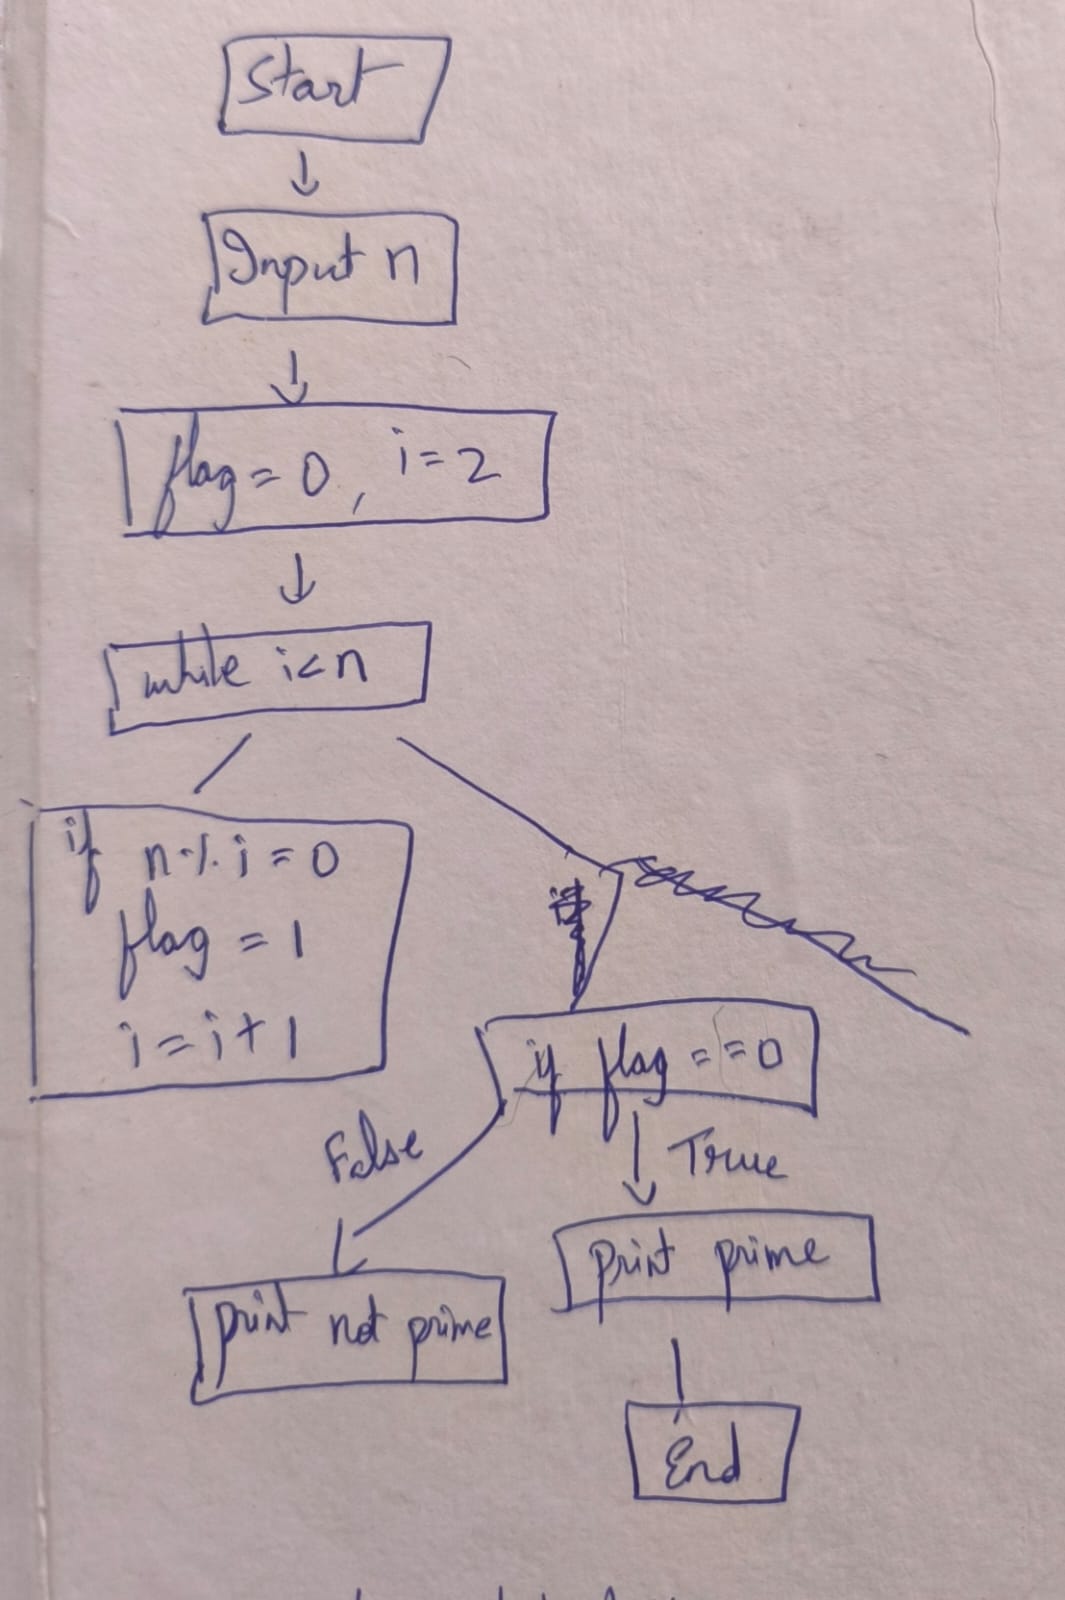 Start
Input n
flag = 0, i = 2
while i<n
if n % i = 0
flag = 1
i = i + 1
if flag = = 0
False
True
print prime
print not prime
End